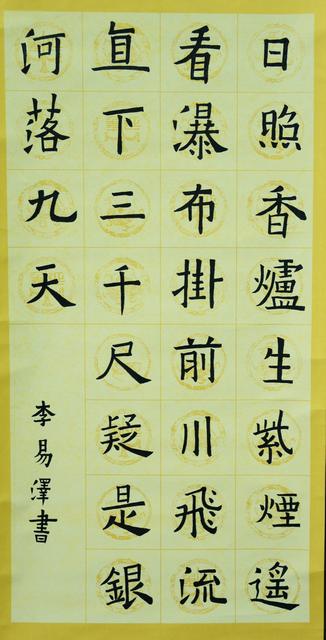 日照香爐生紫煙遙
看瀑布掛前川飛流
直下三千尺疑是銀
河落九天
李易澤書